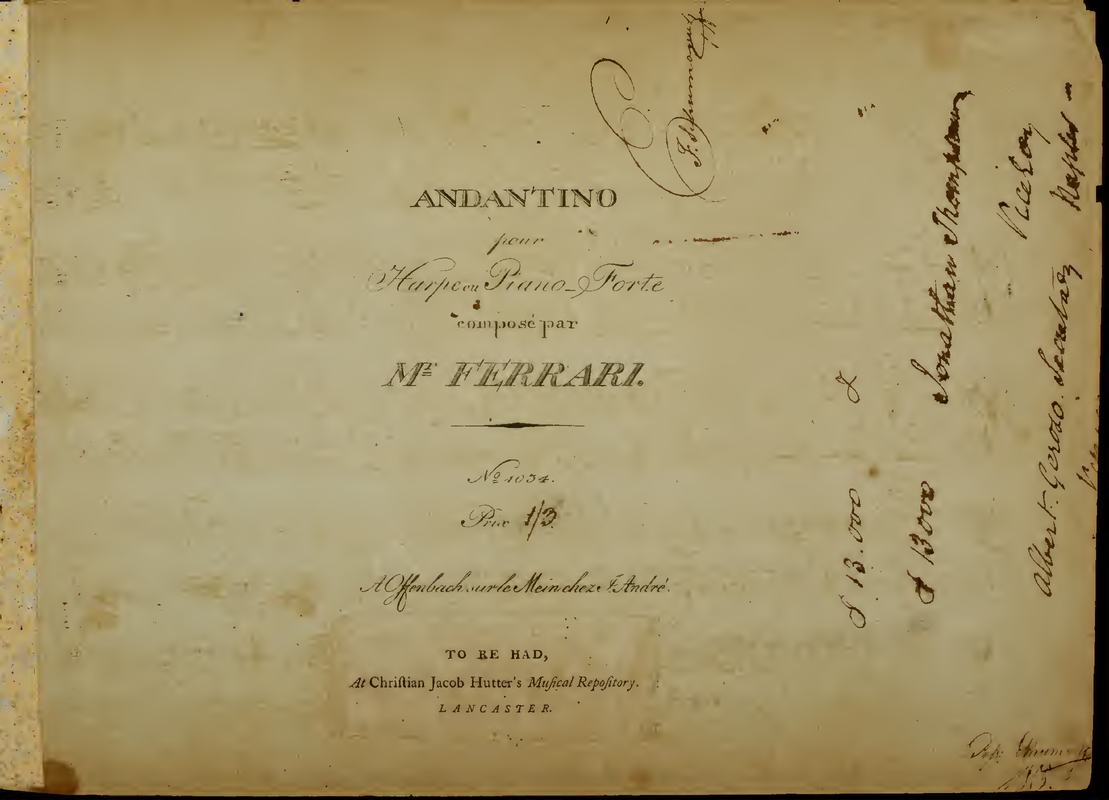 ANDANTINO
pour
Harpe ou Piano-Forte
composé par
Mr. FERRARI.
No. 1034.
Prix 1/3
A Offenbach sur le Mein chez J. André.
TO BE HAD,
At Chriſtian Jacob Hutter's Muſical Repoſitory.
LANCASTER.
$ 13.000
$ 13000 Jonathan Thompson
Albert. Secretary Naples